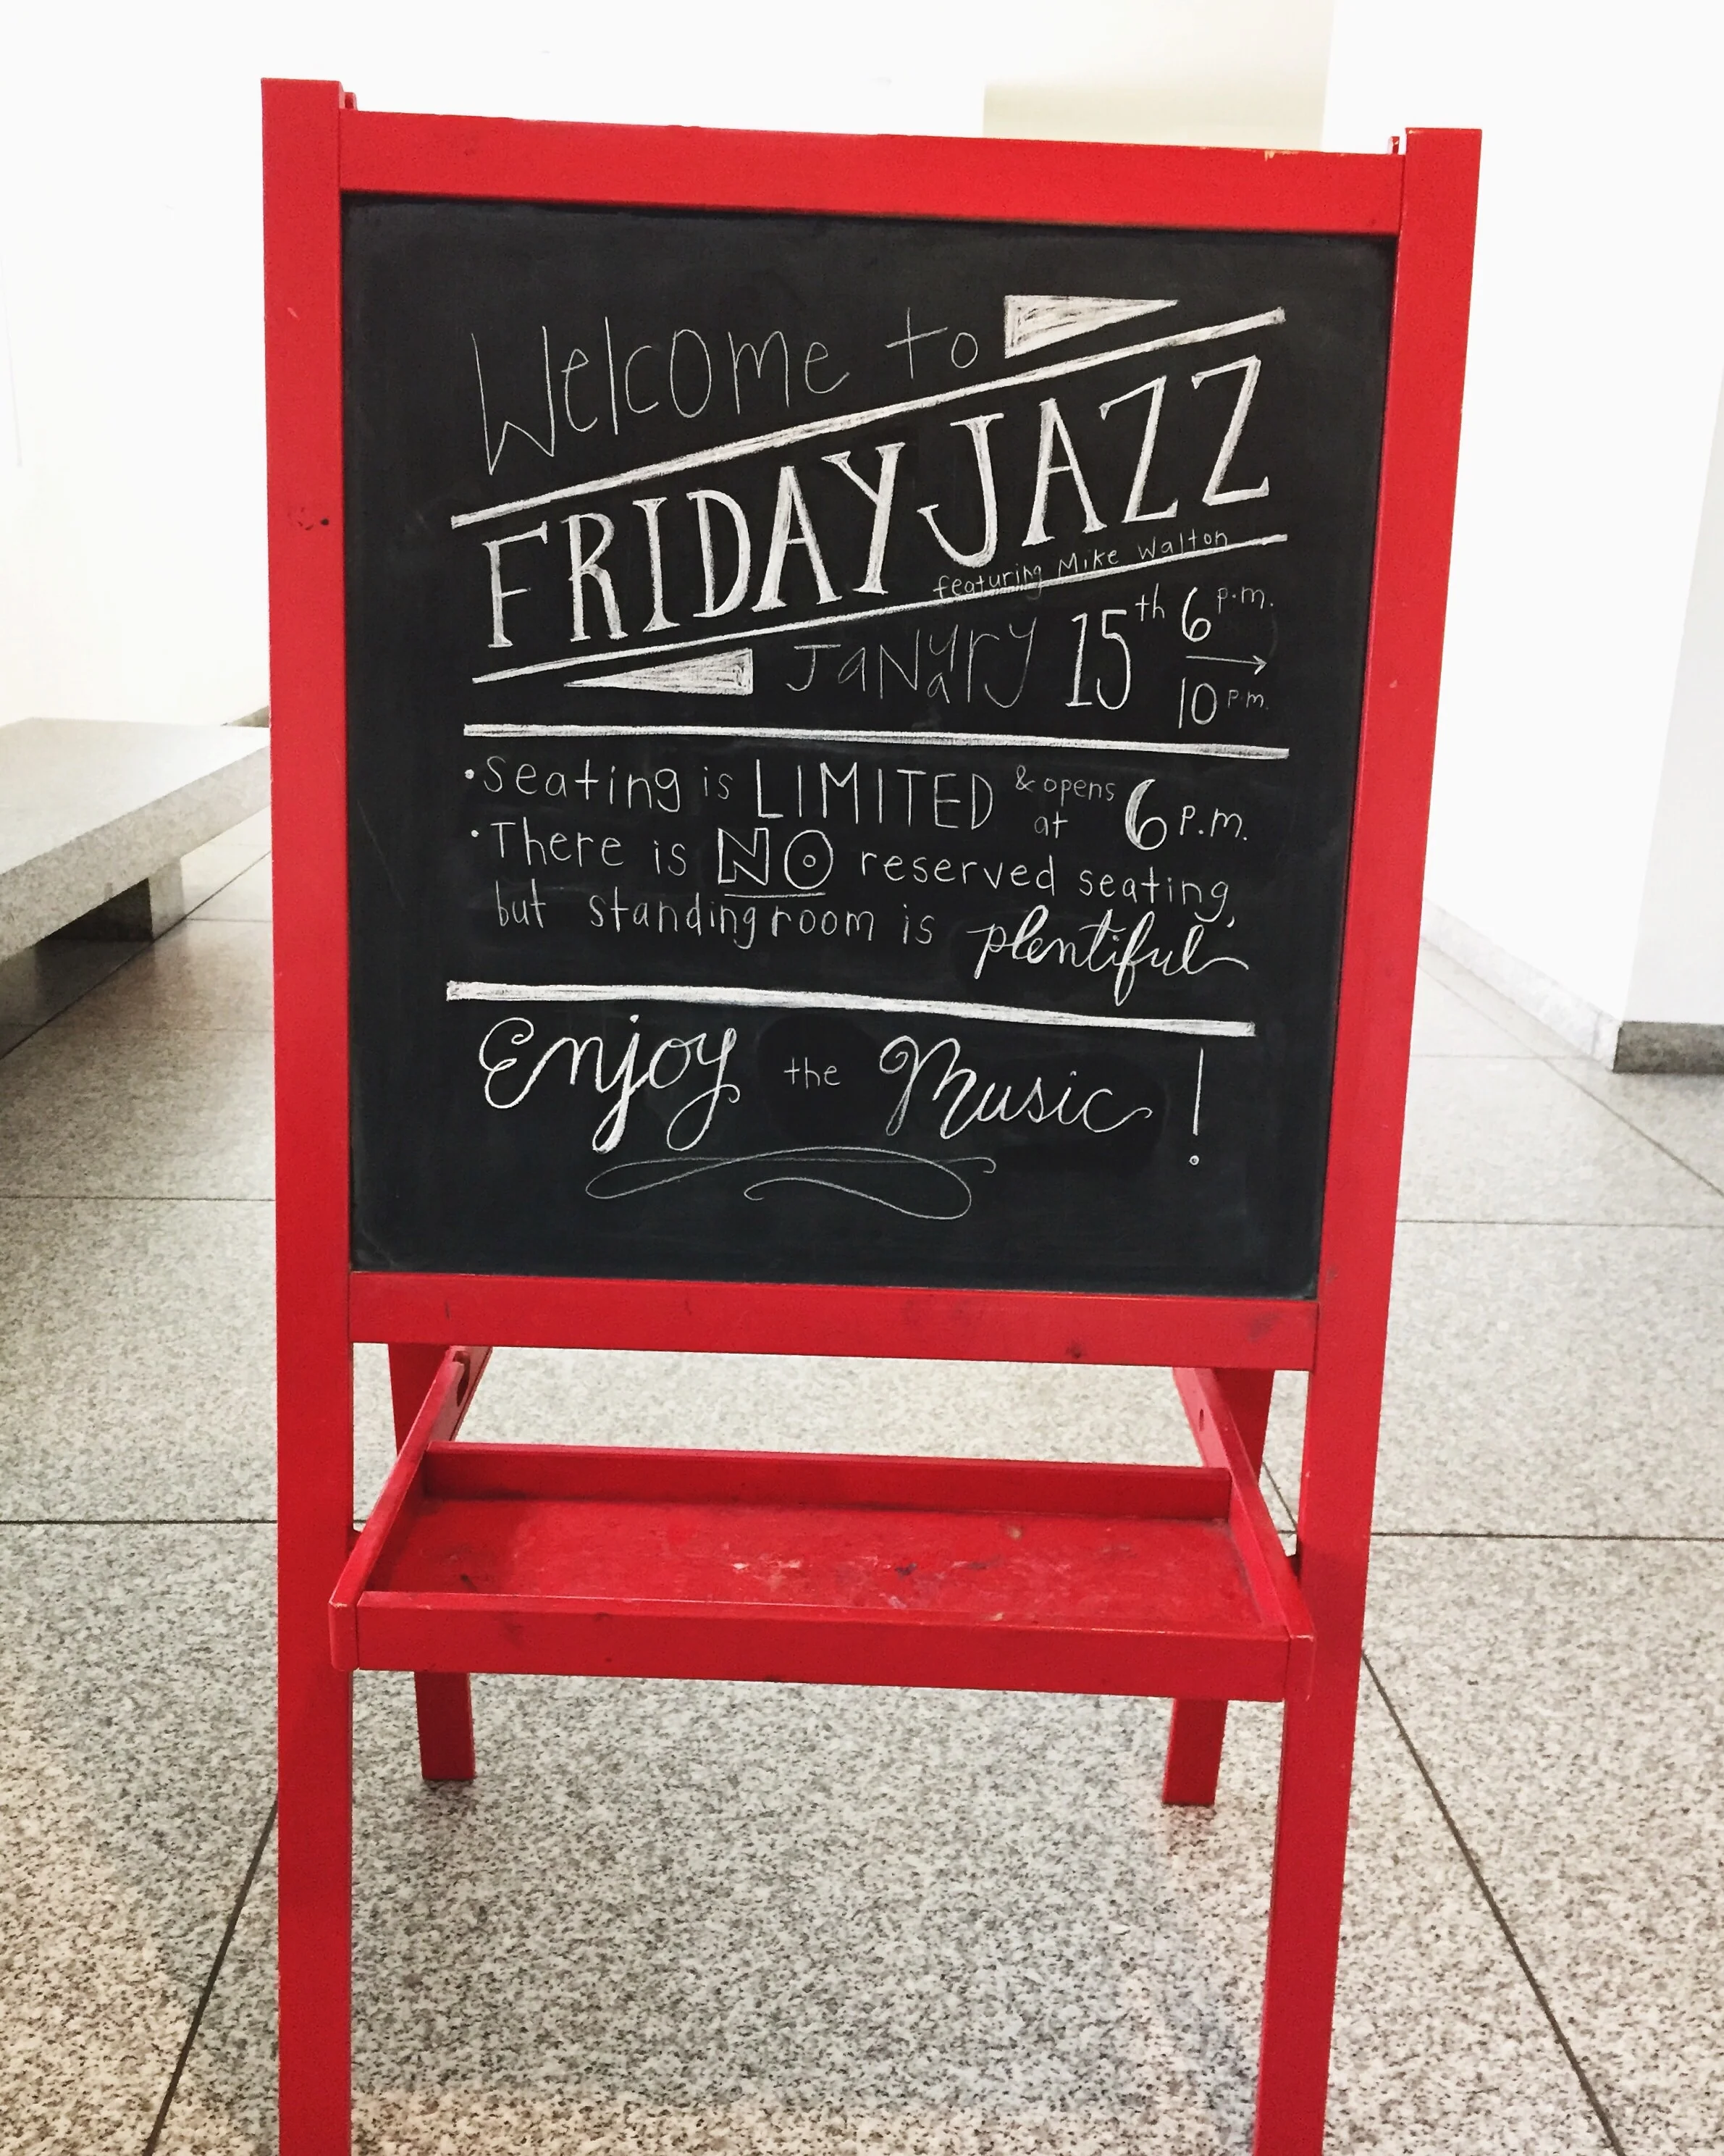 Welcome to
FRIDAY JAZZ
featuring Mike Walton
January 15th 6 p.m. → 10 p.m.
• Seating is LIMITED & opens at 6 p.m.
• There is NO reserved seating,
but standing room is plentiful
Enjoy the Music!